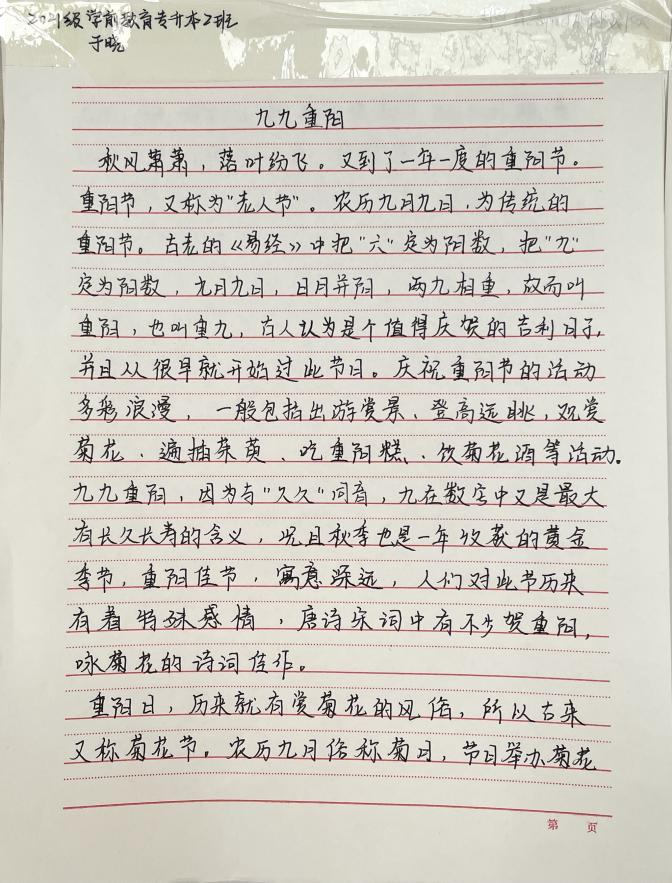 2021级学前教育专升本2班
于晓
九九重阳
秋风萧萧，落叶纷飞。又到了一年一度的重阳节。
重阳节，又称为“老人节”。农历九月九日，为传统的
重阳节。古老的《易经》中把“六”定为阳数，把“九”
定为阳数，九月九日，日月并阳，两九相重，故而叫
重阳，也叫重九，古人认为是个值得庆贺的吉利日子，
并且从很早就开始过此节日。庆祝重阳节的活动
多彩浪漫，一般包括出游赏景、登高远眺，观赏
菊花、遍插茱萸、吃重阳糕、饮菊花酒等活动。
九九重阳，因为与“久久”同音，九在数字中又是最大
有长久长寿的含义，况且秋季也是一年收获的黄金
季节，重阳佳节，寓意深远，人们对此节历来
有着特殊感情，唐诗宋词中有不少贺重阳，
咏菊花的诗词佳作。
重阳日，历来就有赏菊花的风俗，所以古来
又称菊花节。农历九月俗称菊月，节日举办菊花
第 页